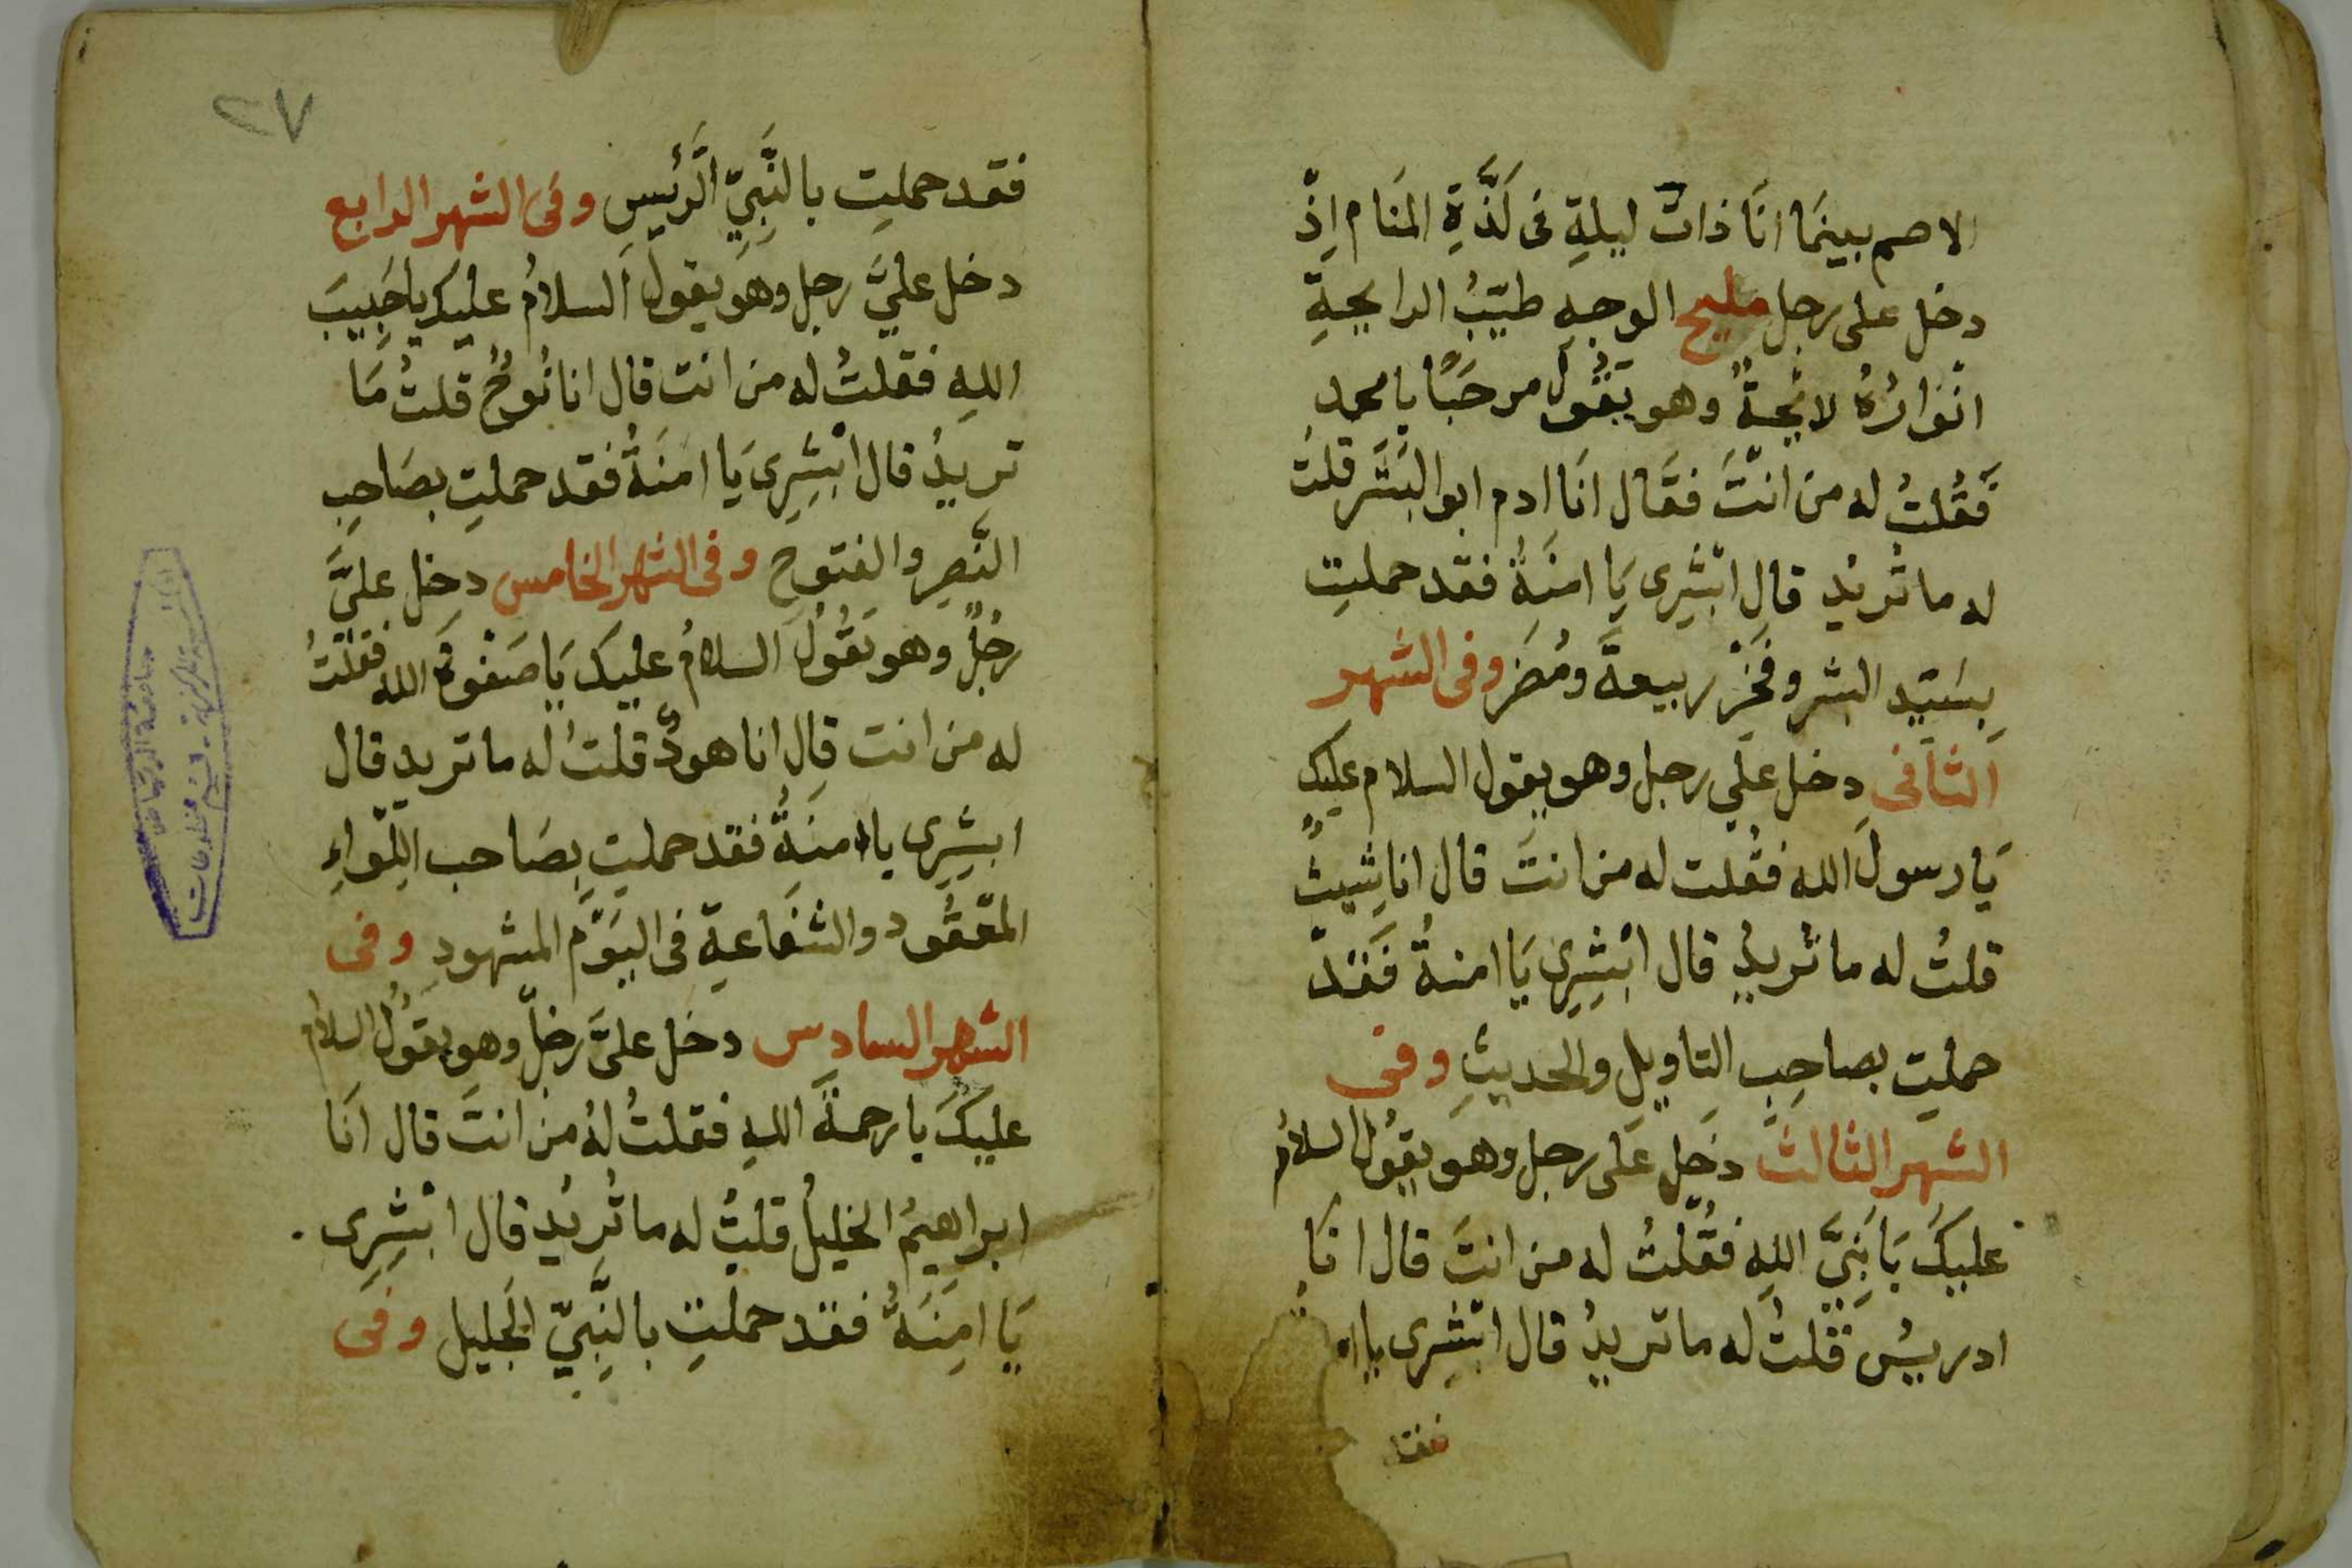 الاصم بينما انا ذات ليلة فى لذة المنام اذ
دخل على رجل مليح الوجه طيب الرايحة
انواره لائحة وهو يقول مرحبا يا محمد
فقلت له من انت فقال انا ادم ابو البشر قلت
له ما تريد قال ابشرى يا امنة فقد حملت
بسيد البشر وفخر ربيعة ومضر وفى الشهر
الثانى دخل على رجل وهو يقول السلام عليك
يا رسول الله فقلت له من انت قال انا شيث
قلت له ما تريد قال ابشرى يا امنة فقد
حملت بصاحب التاويل والحديث وفى
الشهر الثالث دخل على رجل وهو يقول السلام
عليك يا نبى الله فقلت له من انت قال انا
ادريس قلت له ما تريد قال ابشرى يا
فقد
٢٧
فقد حملت بالنبي الرئيس وفى الشهر الرابع
دخل علي رجل وهو يقول السلام عليك يا حبيب
الله فقلت له من انت قال انا نوح قلت ما
تريد قال ابشرى يا امنة فقد حملت بصاحب
النصر والفتوح وفى الشهر الخامس دخل علي
رجل وهو يقول السلام عليك يا صفوة الله فقلت
له من انت قال انا هود قلت له ما تريد قال
ابشرى يا امنة فقد حملت بصاحب اللواء
المعقود والشفاعة فى اليوم المشهود وفى
الشهر السادس دخل على رجل وهو يقول السلام
عليك يا رحمة الله فقلت له من انت قال انا
ابراهيم الخليل قلت له ما تريد قال ابشرى
يا امنة فقد حملت بالنبي الجليل وفى